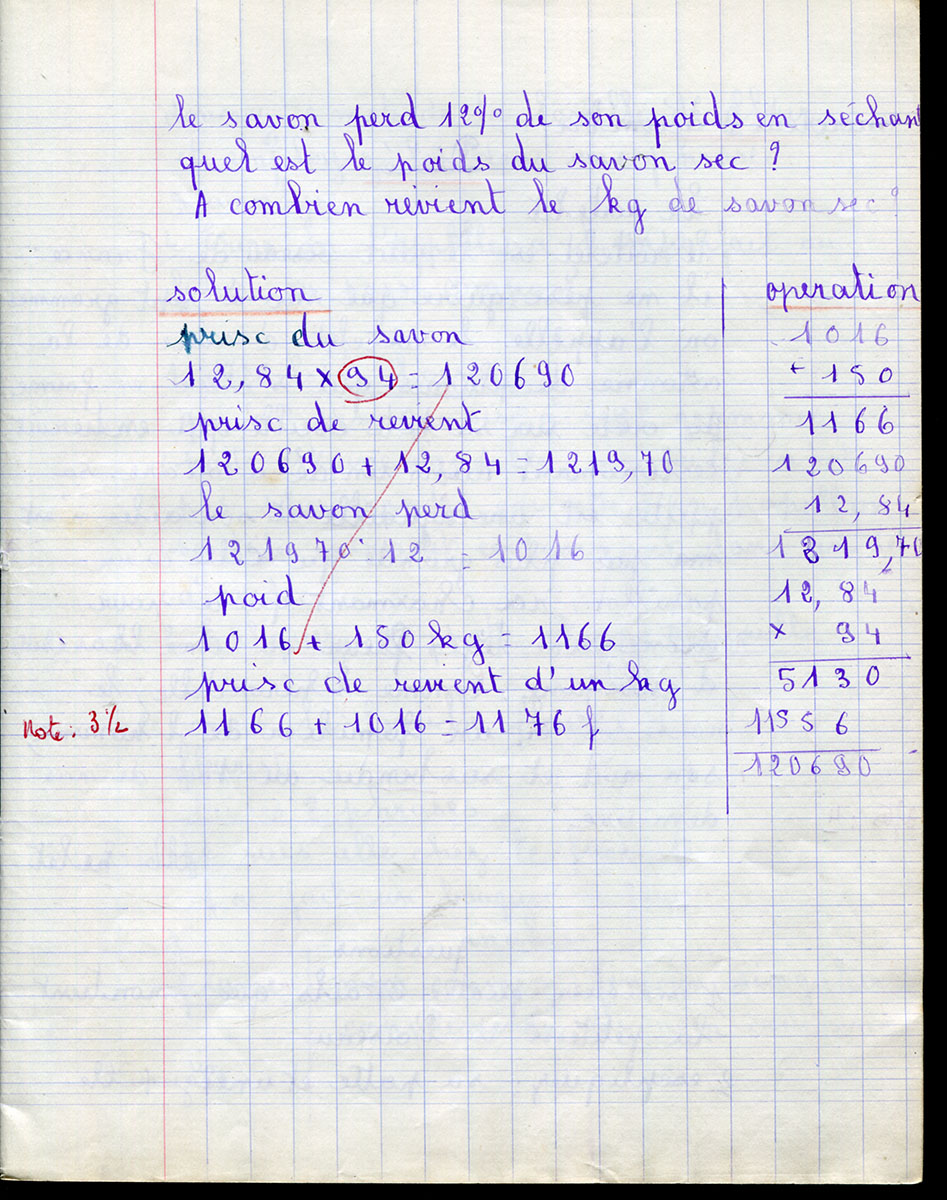 le savon perd 12% de son poids en séchan
quel est le poids du savon sec ?
A combien revient le kg de savon sec ?
solution
prisc du savon
12,84 x 94 = 120690
prisc de revient
120690 + 12,84 = 1219,70
le savon perd
121970 : 12 = 1016
poid
1016 + 150 kg = 1166
prisc de revient d'un kg
Note : 3 1/2
1166 + 1016 = 1176 f
operation
1016
+ 150
1166
120690
12,84
1219,70
12,84
x 94
5130
11556
120690